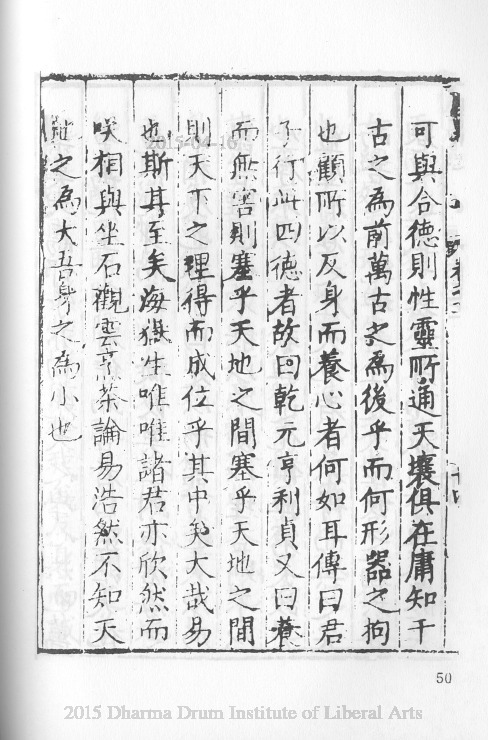 可與合德則性靈所通天壤俱在庸知千
古之為前萬古之為後乎而何形器之拘
也顧所以反身而養心者何如耳傳曰君
子行此四德者故曰乾元亨利貞又曰養
而無害則塞乎天地之間塞乎天地之間
則天下之理得而成位乎其中矣大哉易
也斯其至矣海嶽生唯唯諸君亦欣然而
咲相與坐石觀雲烹茶論易浩然不知天
地之為大吾身之為小也
50
2015-04-16
2015 Dharma Drum Institute of Liberal Arts